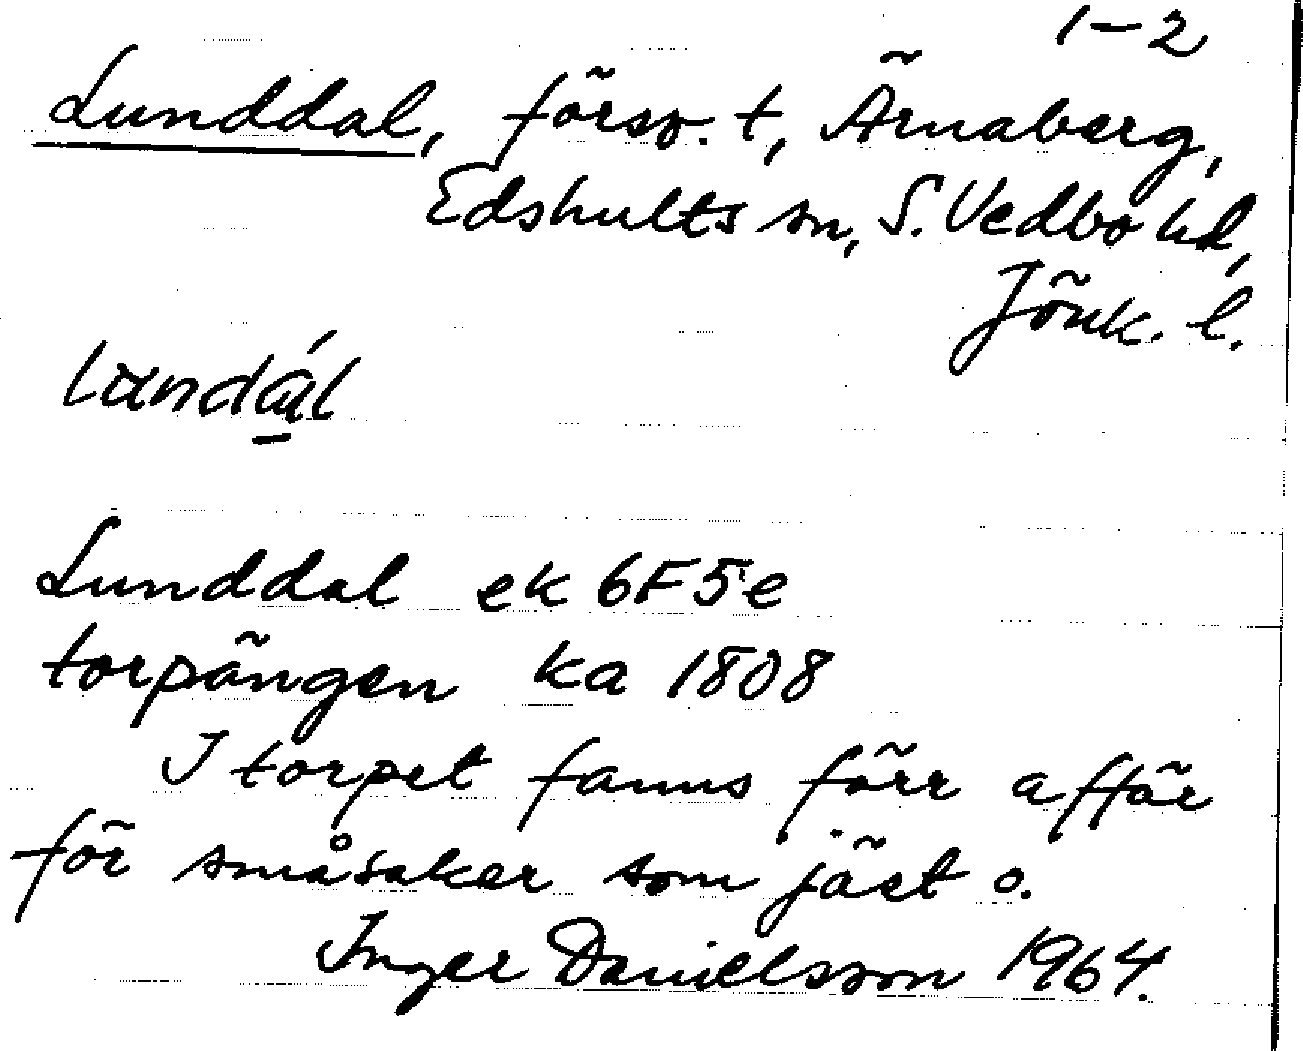 1-2
Lunddal, försv. t, Ärnaberg,
Edshults sn, S. Vedbo hd,
Jönk. l.
Lunddal ek 6F5e
torpängen ka 1808
I torpet fanns förr affär
för småsaker som jäst o.
Inger Danielsson 1964.